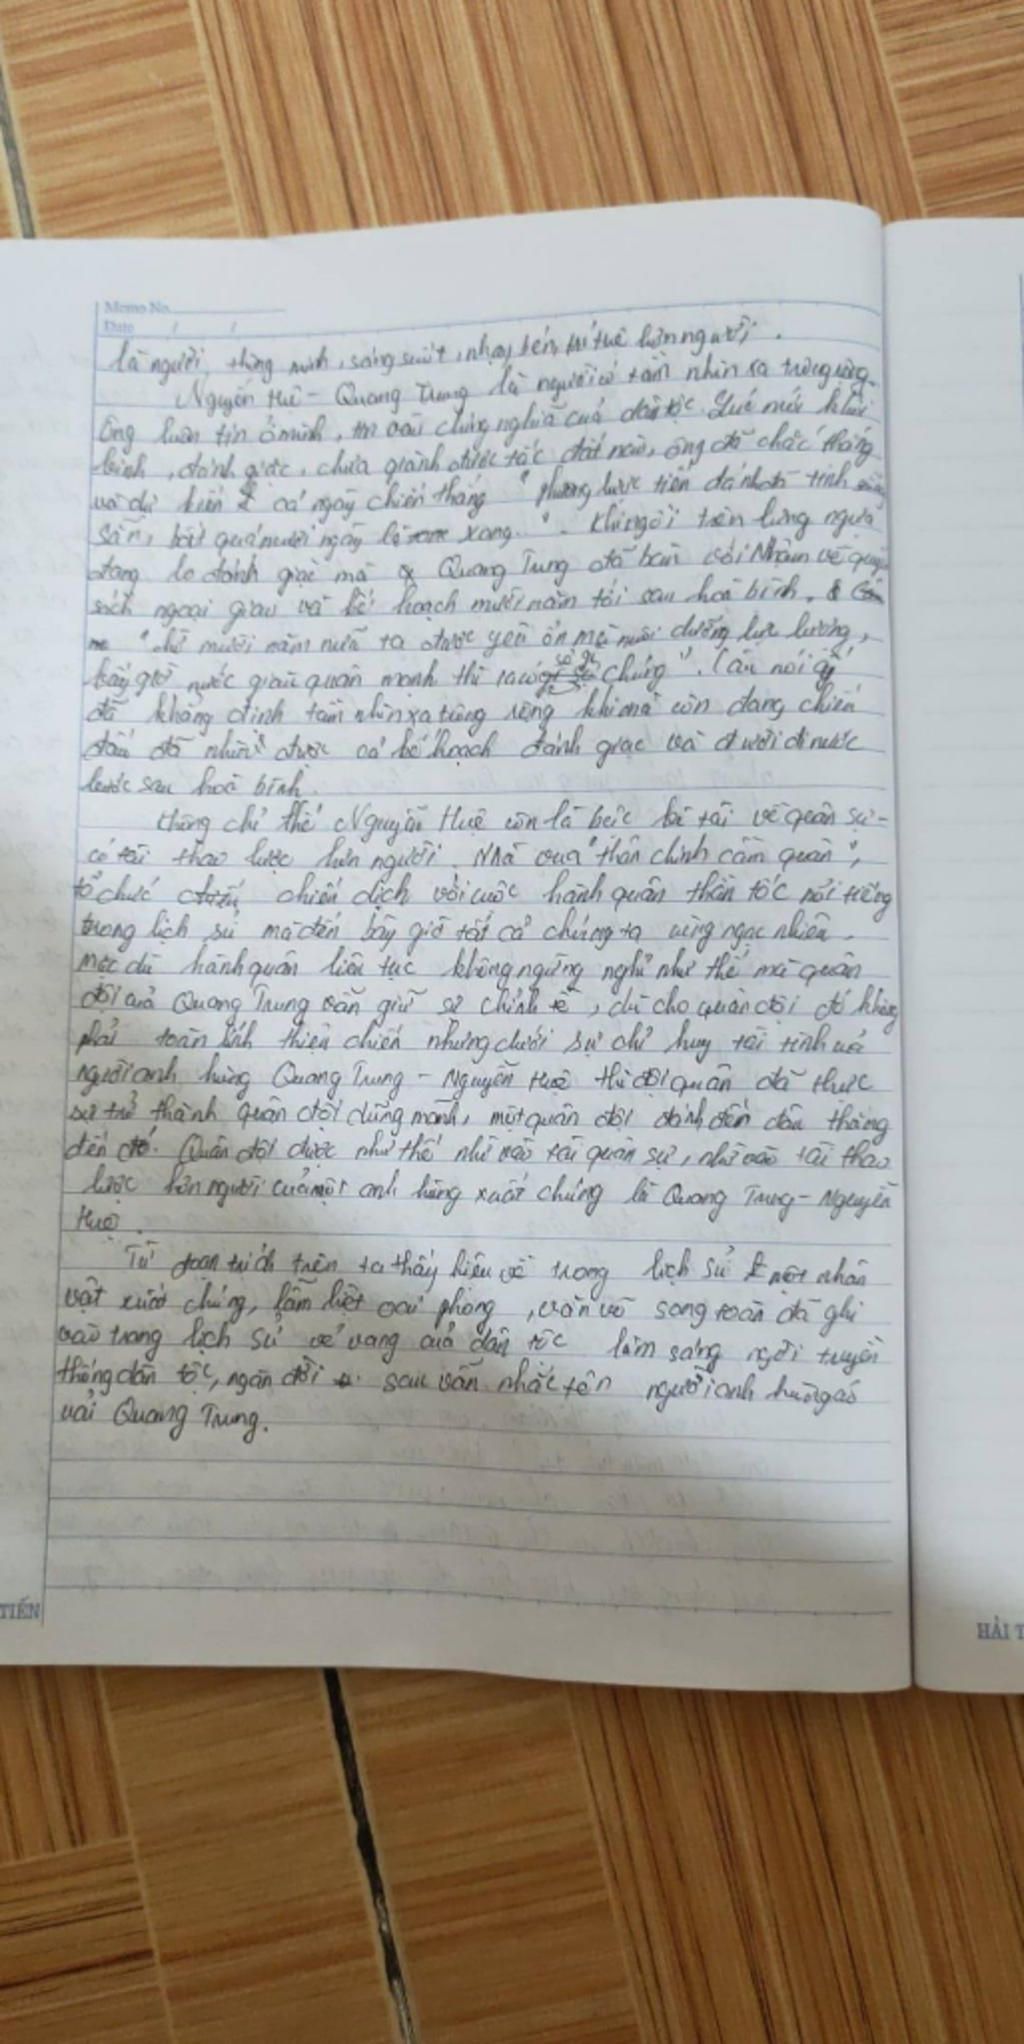 Memo No.
Date / /
là người thông minh, sáng suốt, nhạy bén, trí tuệ hơn người.
Nguyễn Huệ - Quang Trung là người có tầm nhìn xa trông rộng.
Ông luôn tin ở mình, tin vào chính nghĩa của dân tộc. khởi
binh, đánh giặc, chưa giành được tấc đất nào, ông đã chắc thắng
và dự kiến cả ngày chiến thắng "phương lược tiến đánh đã tính
sẵn, bất quá mười ngày là xong..". Khi ngồi trên lưng ngựa
đang lo đánh giặc mà Quang Trung đã bàn với Nhậm về
sách ngoại giao và kế hoạch mười năm tới sau hoà bình.
"chờ mười năm nữa ta được yên ổn mà nuôi dưỡng lực lượng,
bấy giờ nước giàu quân mạnh thì ta có sợ gì chúng". Câu nói ấy
đã khẳng định tầm nhìn xa trông rộng khi mà còn đang chiến
đấu đã nhìn được cả kế hoạch đánh giặc và đường đi nước
bước sau hoà bình.
Không chỉ thế Nguyễn Huệ còn là bậc kì tài về quân sự -
có tài thao lược hơn người. Nhà vua "thân chinh cầm quân",
tổ chức chiến dịch với cuộc hành quân thần tốc nổi tiếng
trong lịch sử mà đến bây giờ tất cả chúng ta cũng ngạc nhiên.
mặc dù hành quân liên tục không ngừng nghỉ như thế mà quân
đội của Quang Trung vẫn giữ sự chỉnh tề, dù cho quân đội đó không
phải toàn lính thiện chiến nhưng dưới sự chỉ huy tài tình của
người anh hùng Quang Trung - Nguyễn Huệ thì đội quân đã thực
sự trở thành quân đội dũng mãnh, một quân đội đánh đến đâu thắng
đến đó. Quân đội được như thế nhờ vào tài quân sự, nhờ vào tài thao
lược hơn người của một anh hùng xuất chúng là Quang Trung - Nguyễn
Huệ.
Từ đoạn trích trên ta thấy hiện về trong lịch sử một nhân
vật xuất chúng, lẫm liệt oai phong, văn võ song toàn đã ghi
vào trang lịch sử vẻ vang của dân tộc làm sáng ngời truyền
thống dân tộc, ngàn đời sau vẫn nhắc tên người anh hùng áo
vải Quang Trung.
TIẾN
HẢI T